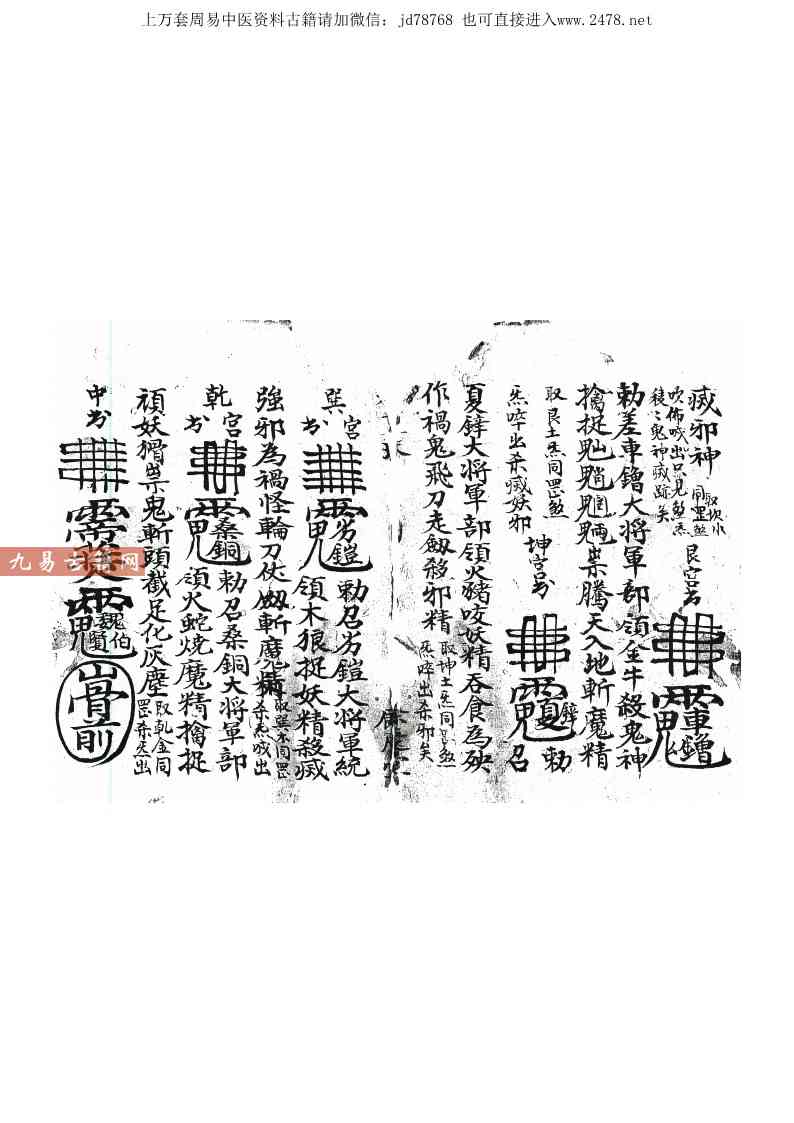 上万套周易中医资料古籍请加微信：jd78768 也可直接进入www.2478.net
滅邪神
取坎水同罡煞
吹佈喊出只見煞炁
後鬼神滅跡矣
艮宮书
車鐕
勅差車鐕大將軍部領金牛殺鬼神
擒捉
祟騰天入地斬魔精
取艮土炁同罡煞
炁啐出杀滅妖邪
坤宮书
夏鋅
勅召
夏鋅大將軍部領火豬咬妖精吞食為殃
作禍鬼飛刀走劔移邪精
取坤土炁同罡煞
炁啐出杀邪矣
巽宮书
劣鎧
勅召劣鎧大將軍統
領木狼捉妖精殺滅
強邪為禍怪輪刀仗劔斬魔精
取巽木同罡
杀炁喊出
乾宮书
桑銅
勅召桑銅大將軍部
領火蛇燒魔精擒捉
頑妖猾祟鬼斬頭截足化灰塵
取乾金同
罡杀炁出
中书
魏伯賢
九易古籍网